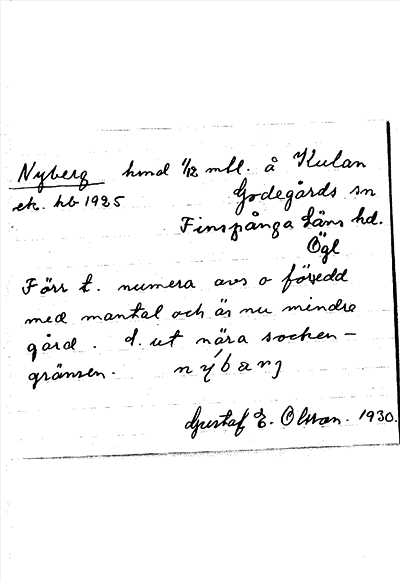 Nyberg hmd 1/12 mtl. å Kulan
ek. hb 1925 Godegårds sn
Finspånga Läns hd.
Ögl
Förr t. numera avs o försedd
med mantal och är nu mindre
gård. d. ut nära socken-
gränsen. nýbærj
Gustaf E. Olsson. 1930.